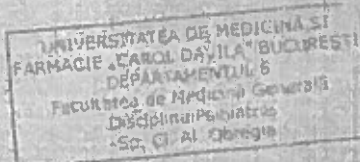 UNIVERSITATEA DE MEDICINĂ ȘI
FARMACIE „CAROL DAVILA” BUCUREȘTI
DEPARTAMENTUL 6
Facultatea de Medicină Generală
Disciplina Psihiatrie
Sp. Cl. Al. Obregia